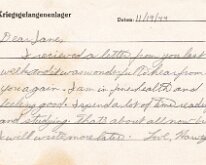 Kriegsgefangenenlager Datum: 11/19/44
Dear Jane,
I received a letter from you last
week and it was wonderful to hear from
you again. I am in good health and
feeling good. I spend a lot of time reading
and studying. That's about all now but
I will write more later. Love,